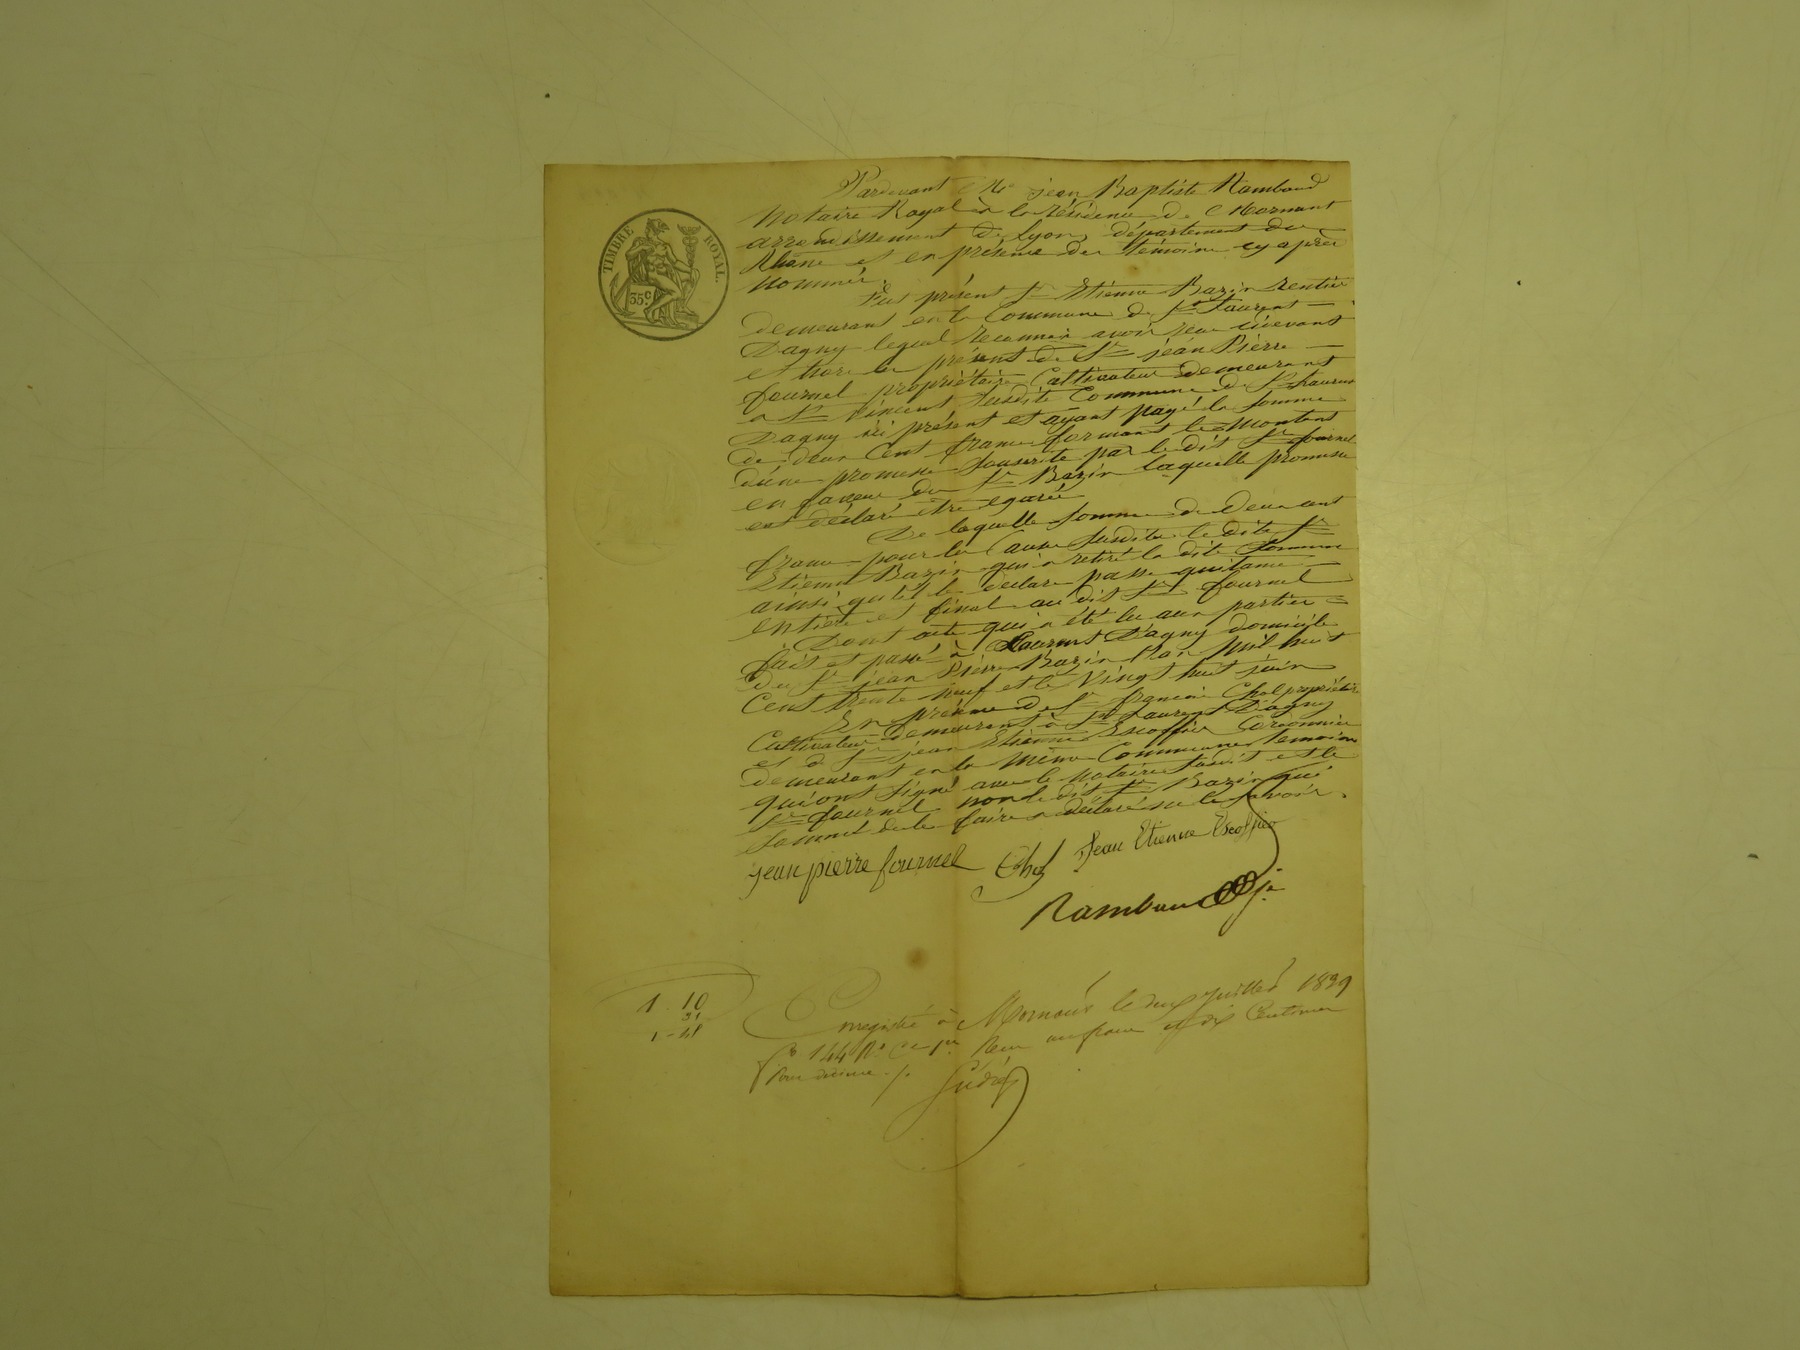 TIMBRE ROYAL.
35c
Pardevant Me jean Baptiste Rambaud
Notaire Royal à la résidence de Mornant
arrondissement de Lyon, département du
Rhône et en présence des témoins cy après
nommés.
Fut présent Sr Etienne Bazin rentier
demeurant en la Commune de St Laurent
Dagny lequel reconnait avoir reçu cidevant
et hors les présent de Sr jean Pierre
fournel propriétaire Cultivateur demeurant
a St Vincent susdite Commune de St Laurent
Dagny ici présent et ayant payé la somme
de deux Cent francs formant le montant
d'une promesse souscrite par le dit Sr fournel
en faveur du Sr Bazin laquelle promesse
est déclaré être egarée
De laquelle somme de deux cent
francs pour les Causes susdites le dit Sr
Etienne Bazin qui a retiré la dite Somme
ainsi qu'il le declare passe quitance
entière et final au dit Sr fournel
Dont acte qui a été lu aux parties
fait et passé à St Laurent Dagny domicile
du Sr jean Pierre Bazin l'an mil huit
Cent trente neuf et le vingt huit juin
En présence de Sr françois Chol propriétaire
Cultivateur demeurant à St Laurent Dagny
et de Sr jean Etienne Escoffier Cordonnier
demeurant en la même Commune temoins
qui ont signé avec le notaire susdit et le
Sr fournel non le dit Sr Bazin qui
sommé de le faire a déclaré ne le savoir.
jean pierre fournel Chol Jean Etienne Escoffier
Rambaud
1 10
1
Enregistré à Mornant le deux juillet 1839
fo 144 Ro Ce Reçu un franc et dix Centimes
pour décime